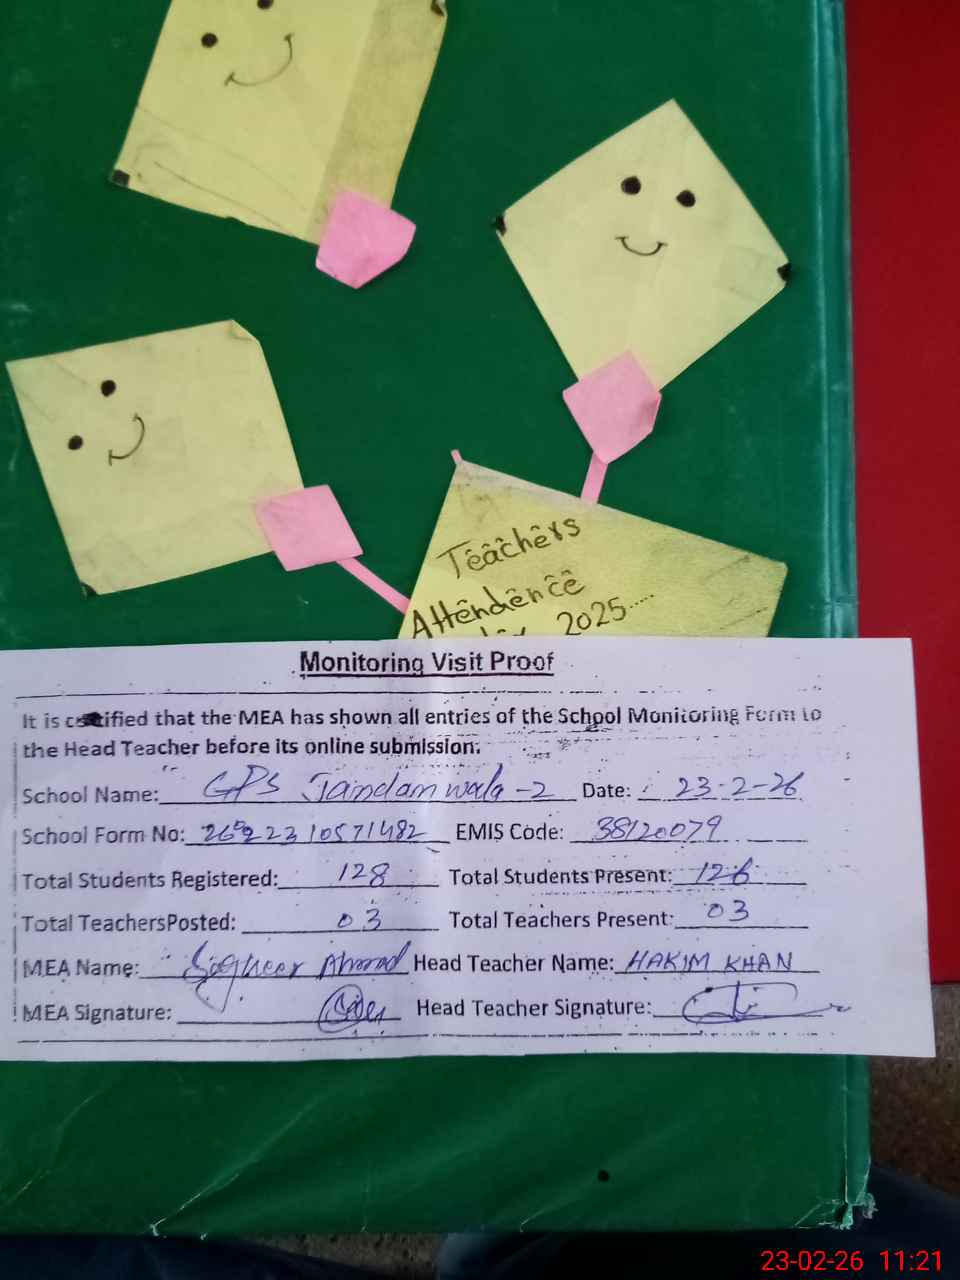 Teachers
Attendence
2025.....
Monitoring Visit Proof
It is certified that the MEA has shown all entries of the School Monitoring Form to
the Head Teacher before its online submission.
School Name: GPS Jandanwala-2 Date: 23-2-26
School Form No: EMIS Code: 38120079
Total Students Registered: 128 Total Students Present: 126
Total TeachersPosted: 03 Total Teachers Present: 03
MEA Name: Sagheer Ahmad Head Teacher Name: HAKIM KHAN
MEA Signature: Head Teacher Signature:
23-02-26 11:21